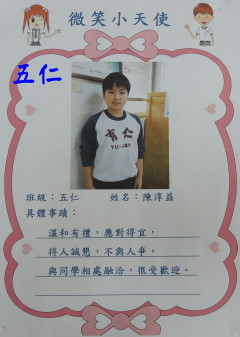 微笑小天使
五仁
有仁
YU-JEN
班級：五仁 姓名：陳淳益
具體事蹟：
溫和有禮，應對得宜，
待人誠懇，不與人爭，
與同學相處融洽，很受歡迎。